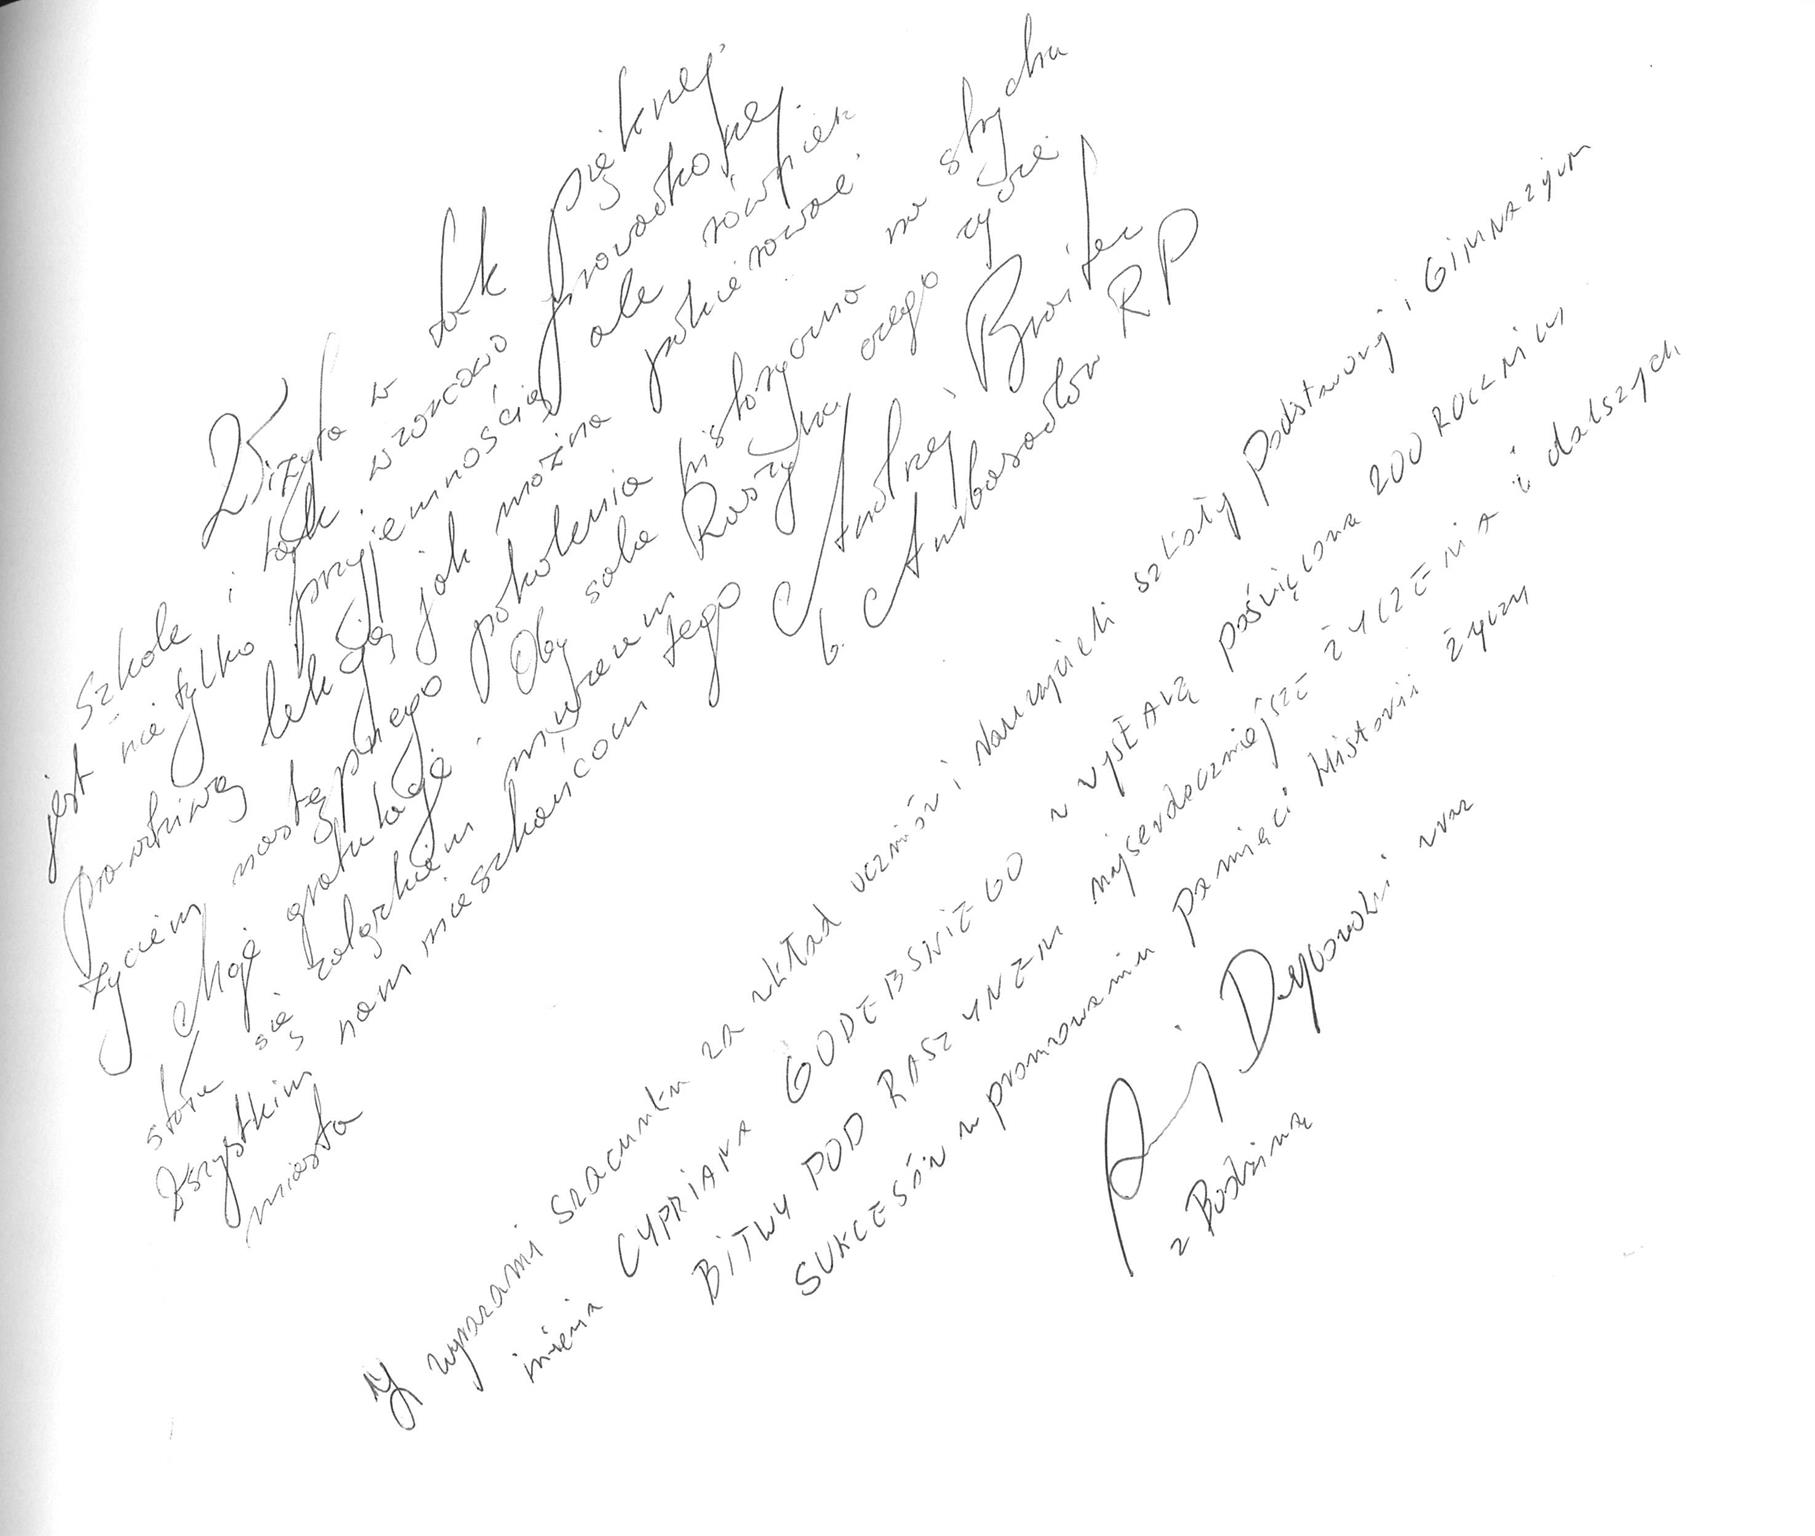 Wizyta w tak pięknej
szkole i tak wzorcowo prowadzonej
jest nie tylko przyjemnością ale również
prawdziwą lekcją jak można pokierować
życiem następnego pokolenia
Moje gratulacje. Oby sala historyczna na strychu
stała się zalążkiem muzeum Raszyna czego życzę
wszystkim nam mieszkańcom tego
miasta
Andrzej
b. Ambasador RP
Z wyrazami szacunku za wkład uczniów i Nauczycieli szkoły podstawowej i GIMNAZJUM
imienia CYPRIANA GODEBSKIEGO w WYSTAWĘ poświęconą 200 ROCZNICY
BITWY POD RASZYNEM najserdeczniejsze ŻYCZENIA i dalszych
SUKCESÓW w promowaniu Pamięci Historii życzy
wraz
z Rodziną